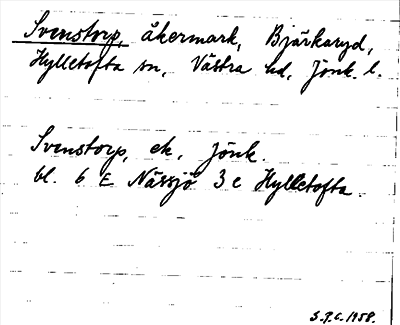 Svenstorp, åkermark, Bjärkaryd,
Hylletofta sn, Västra hd, Jönk. l.
Svenstorp, ek, Jönk.
bl. 6 E Nässjö 3 c Hylletofta.
S.F.C. 1958.